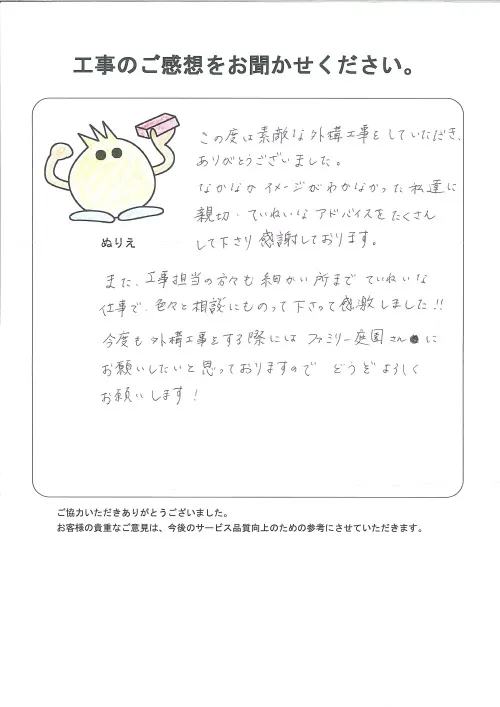 工事のご感想をお聞かせください。
この度は素敵な外構工事をしていただき、
ありがとうございました。
なかなかイメージがわかなかった私達に
親切・ていねいなアドバイスをたくさん
して下さり感謝しております。
ぬりえ
また、工事担当の方々も細かい所までていねいな
仕事で、色々と相談にものって下さって感激しました!!
今度も外構工事をする際には ファミリー庭園さん に
お願いしたいと思っておりますので どうぞよろしく
お願いします!
ご協力いただきありがとうございました。
お客様の貴重なご意見は、今後のサービス品質向上のための参考にさせていただきます。